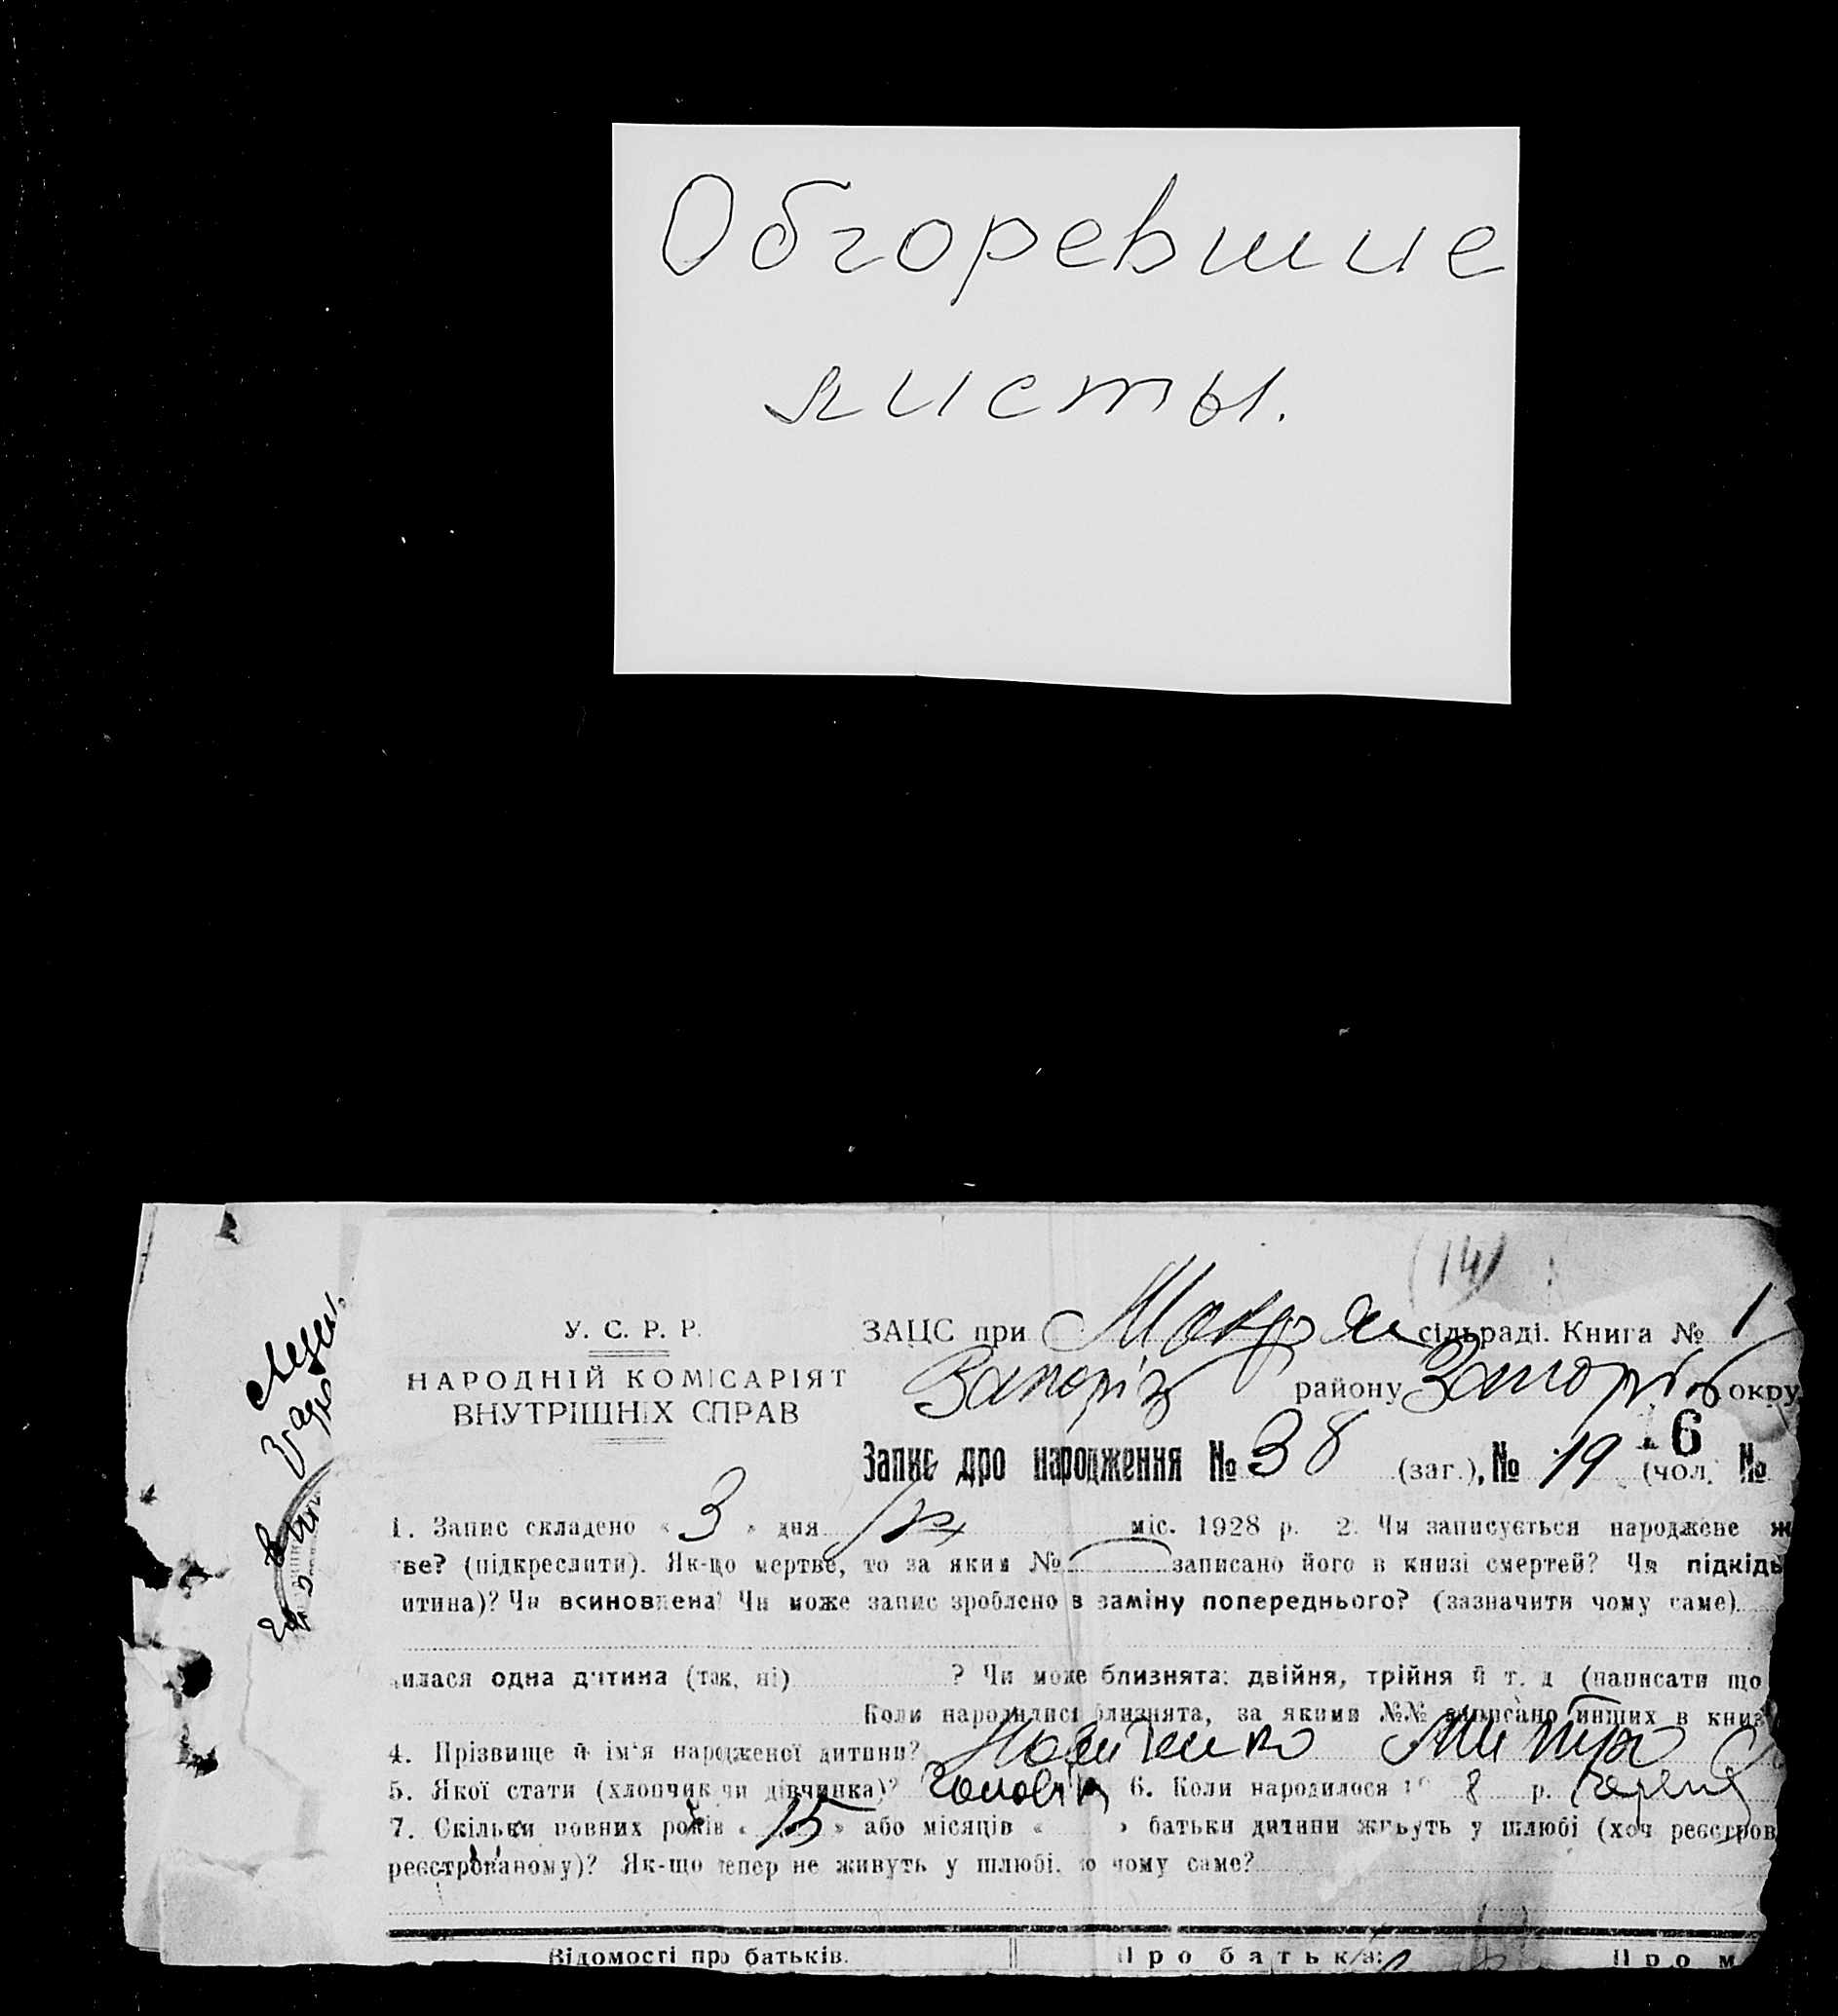 Обгоревшие
листы.
(14)
У. С. Р. Р.
НАРОДНІЙ КОМІСАРІЯТ
ВНУТРІШНІХ СПРАВ
ЗАЦС при Мокрян сільраді. Книга № 1
Запоріз району Запоріз окру
6
Запис про народження № 38 (заг.), № 19 (чол. №
1. Запис складено « 3 » дня міс. 1928 р. 2. Чи записується народжене ж
тве? (підкреслити). Як-що мертве, то за яким № записано його в книзі смертей? Чи підкідь
итина)? Чи всиновлена? Чи може запис зроблено в заміну попереднього? (зазначити чому саме)
илася одна дитина (так, ні) ? Чи може близнята: двійня, трійня й т. д (написати що
Коли народилися близнята, за якими №№ записано инших в книз
4. Прізвище й ім'я народженої дитини? Митро
5. Якої стати (хлопчик чи дівчинка)? Чоловік 6. Коли народилося 19 8 р.
7. Скільки повних років « 15 » або місяців « » батьки дитини живуть у шлюбі (хоч реєстров
реєстрованому)? Як-що тепер не живуть у шлюбі, то чому саме?
Відомості про батьків. Про батька: Про м